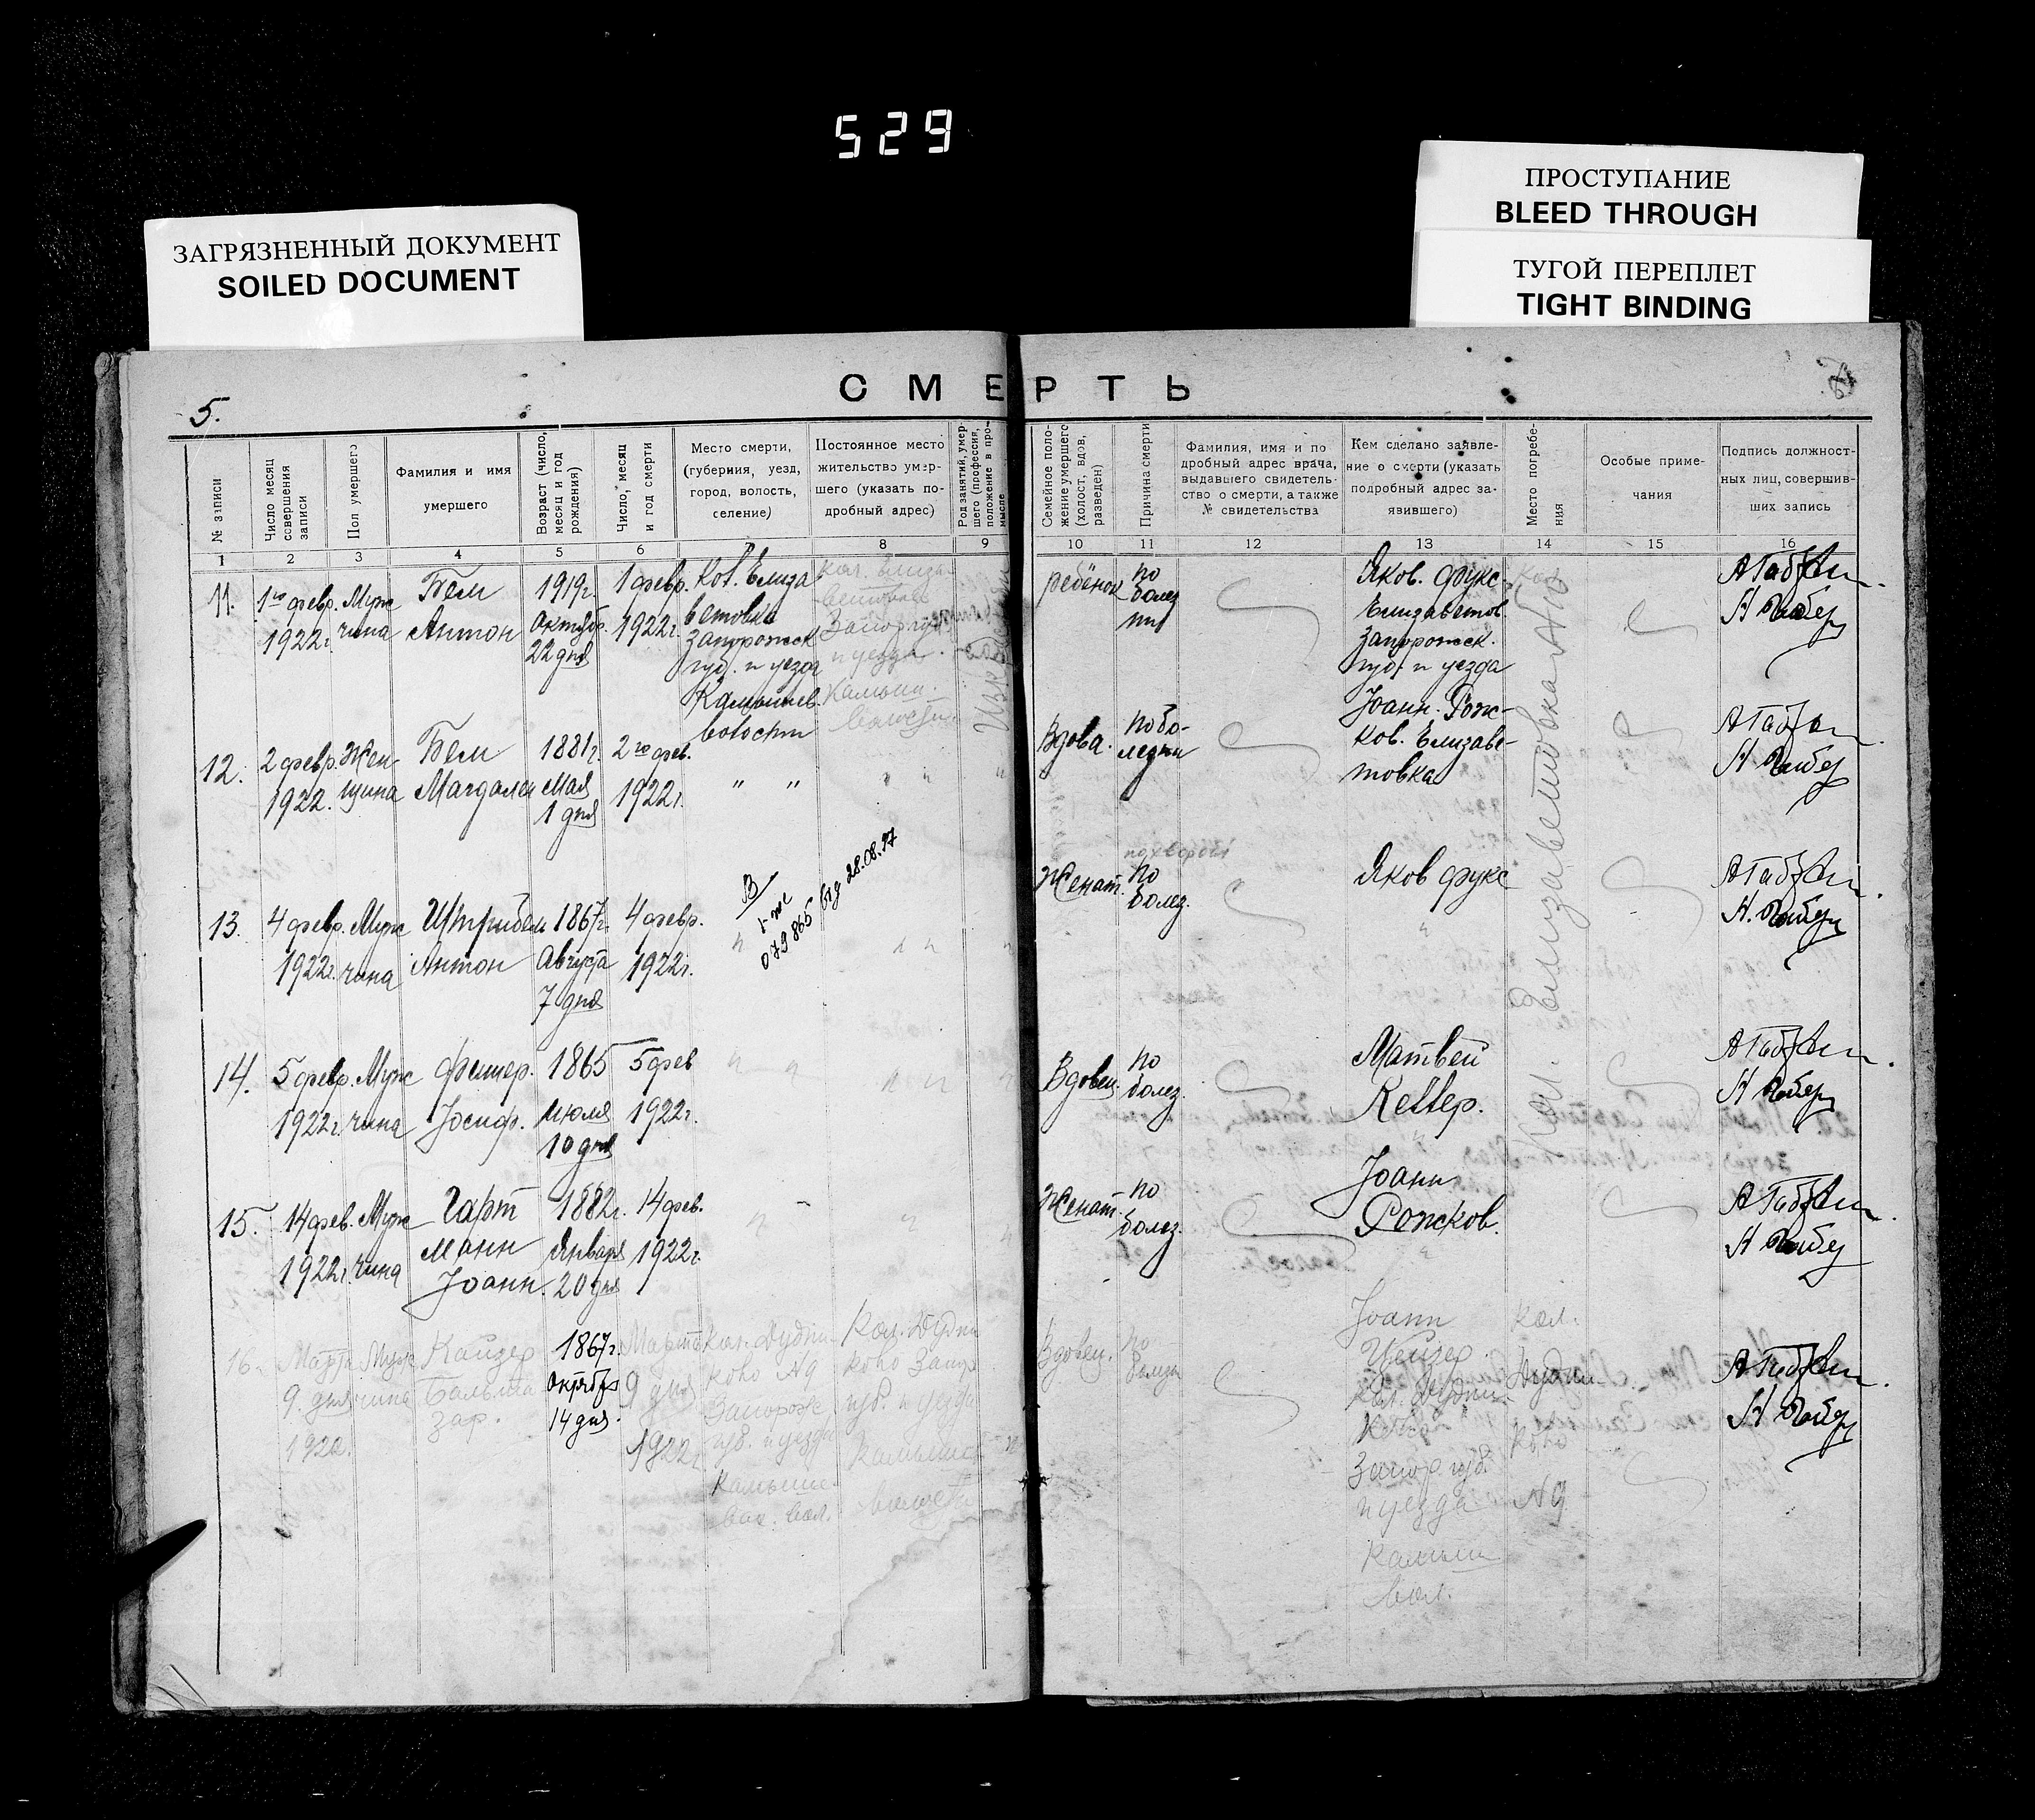 529
ЗАГРЯЗНЕННЫЙ ДОКУМЕНТ
SOILED DOCUMENT
ПРОСТУПАНИЕ
BLEED THROUGH
ТУГОЙ ПЕРЕПЛЕТ
TIGHT BINDING
СМЕРТЬ
5.
№ записи
Число месяц
совершения
записи
Пол умершего
Фамилия и имя
умершего
Возраст (число,
месяц и год
рождения)
Число, месяц
и год смерти
Место смерти,
(губерния, уезд,
город, волость,
селение)
Постоянное место
жительство умер-
шего (указать по-
дробный адрес)
Род занятий, умер-
шего (профессия,
положение в про-
мысле
Семейное поло-
жение умершего
(холост, вдов,
разведен)
Причина смерти
Фамилия, имя и по
дробный адрес врача,
выдавшего свидетель-
ство о смерти, а также
№ свидетельства
Кем сделано заявле-
ние о смерти (указать
подробный адрес за-
явившего)
Место погребе-
ния
Особые приме-
чания
Подпись должност-
ных лиц, совершив-
ших запись
1 2 3 4 5 6 7 8 9 10 11 12 13 14 15 16
11.
1го февр.
1922г.
Муж
чина
Бем
Антон
1919г.
Октябр.
22 дня
1 февр.
1922г.
Кол. Елиза
ветовка
Запорожск
губ. и уезда
Камышев.
волости
Кол. Елиза-
ветовка
Запор. губ.
и уезда
Камыш.
волости
ребёнок
по
болез
ни
Яков. Фукс
Елизаветов
Запорожск.
губ. и уезда
Кол. Елизаветовка
12.
2 февр.
1922.
Жен-
щина
Бем
Магдален
1881г.
Мая
1 дня
2го фев.
1922г.
" "
" "
"
Вдова.
по бо-
лезни
Іоанн. Рож-
ков. Елизаве-
товка
13.
4 февр.
1922г.
Муж
чина
Штрибель
Антон
1867г.
Августа
7 дня
4 февр.
1922г.
079865
28.08.97
" "
Женат.
по
болез.
Яков Фукс
"
14.
5 февр.
1922г.
Муж
чина
Фишер.
Іосиф.
1865
Июля
10 дня
5 фев
1922г.
" "
" "
Вдовец.
по
болез.
Матвей
Келлер.
"
15.
14 фев.
1922г.
Муж
чина
Гарт
манн
Іоанн.
1882г.
Января
20 дня
14 фев.
1922г.
"
"
Женат.
по
болез.
Іоанн
Рожков.
"
16.
Марта
9. дня
1922.
Муж
чина
Кайзер
Бальта
зар.
1867г.
Октября
14 дня.
Марта
9 дня
1922г
Кол. Дудни-
ково №9
Запорож
губ. и уезда
Камыше
вах. вол.
Кол. Дудни
ково Запор
губ. и уезда
Камышев
волость
Вдовец.
по
болезн
Іоанн
Кол. Дудни-
ково
Запор. губ.
и уезда
Камыш
вол.
Кол.
Дудни-
ково
№9